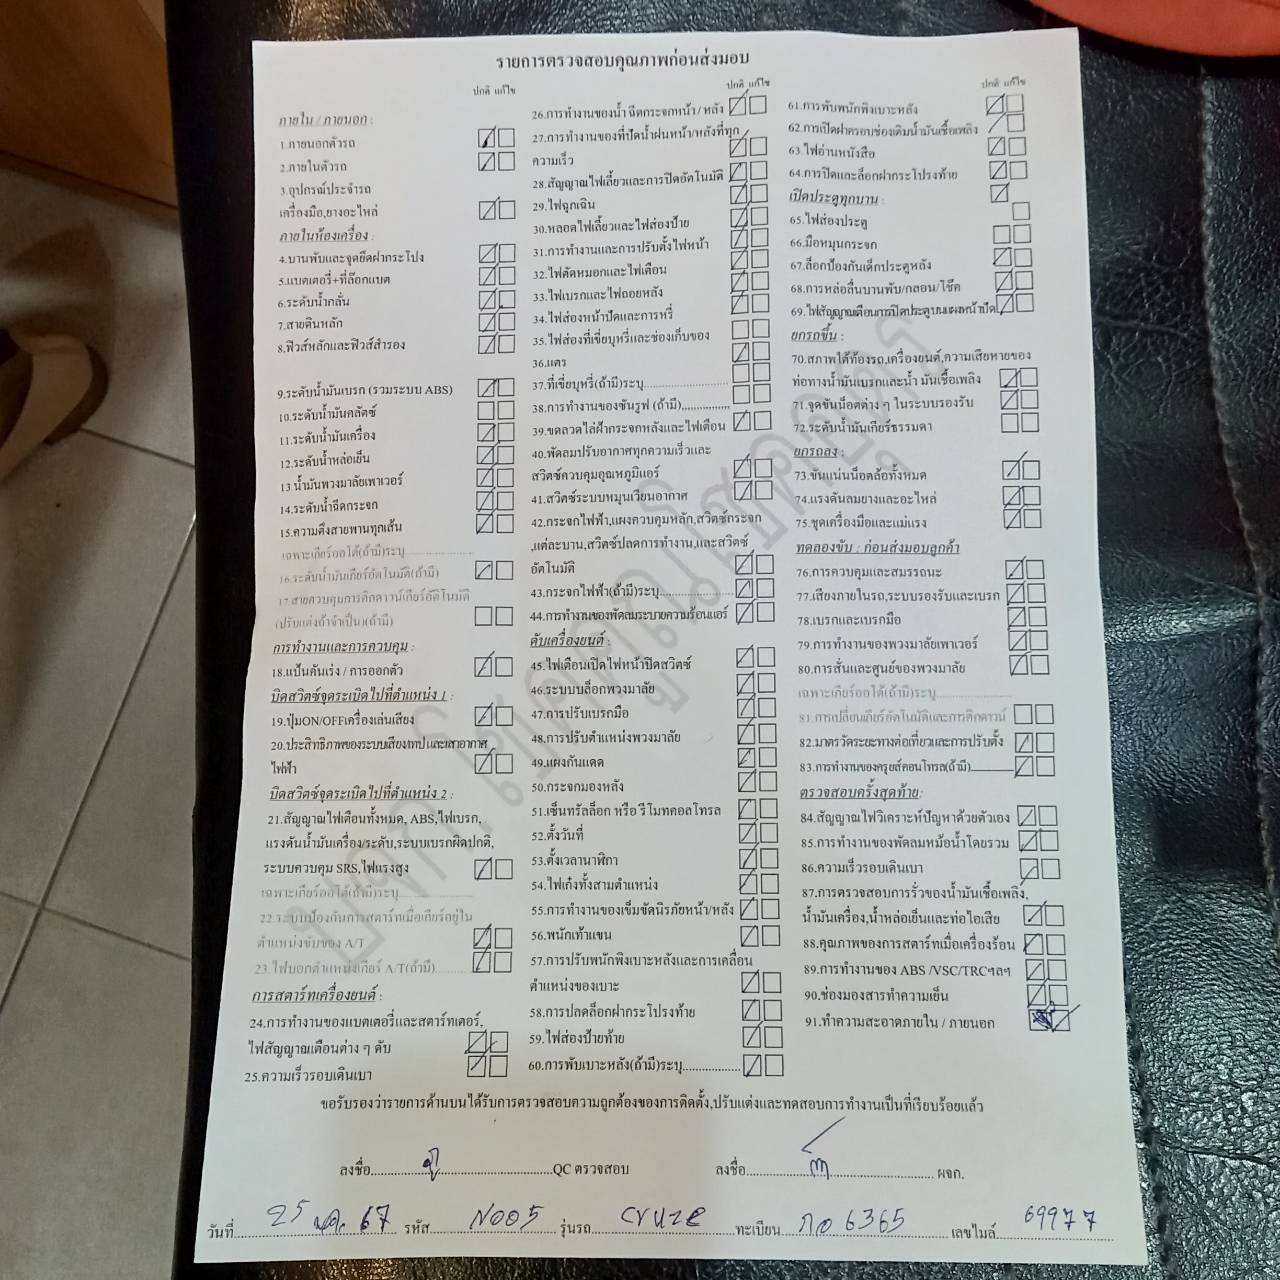 รายการตรวจสอบคุณภาพก่อนส่งมอบ
ปกติ แก้ไข
ภายใน / ภายนอก :
1.ภายนอกตัวรถ
2.ภายในตัวรถ
3.อุปกรณ์ประจำรถ
เครื่องมือ,ยางอะไหล่
ภายในห้องเครื่อง :
4.บานพับและจุดยึดฝากระโปง
5.แบตเตอรี่+ที่ล๊อกแบต
6.ระดับน้ำกลั่น
7.สายดินหลัก
8.ฟิวส์หลักและฟิวส์สำรอง
9.ระดับน้ำมันเบรก (รวมระบบ ABS)
10.ระดับน้ำมันคลัตซ์
11.ระดับน้ำมันเครื่อง
12.ระดับน้ำหล่อเย็น
13.น้ำมันพวงมาลัยเพาเวอร์
14.ระดับน้ำฉีดกระจก
15.ความตึงสายพานทุกเส้น
เฉพาะเกียร์ออโต้(ถ้ามี)ระบุ
16.ระดับน้ำมันเกียร์อัตโนมัติ(ถ้ามี)
17.สายควบคุมการคิกดาวน์เกียร์อัตโนมัติ
(ปรับแต่งถ้าจำเป็น)(ถ้ามี)
การทำงานและการควบคุม :
18.แป้นคันเร่ง / การออกตัว
บิดสวิตซ์จุดระเบิดไปที่ตำแหน่ง 1 :
19.ปุ่มON/OFFเครื่องเล่นเสียง
20.ประสิทธิภาพของระบบเสียง/เทป และเสาอากาศ
ไฟฟ้า
บิดสวิตซ์จุดระเบิดไปที่ตำแหน่ง 2 :
21.สัญญาณไฟเตือนทั้งหมด, ABS,ไฟเบรก,
แรงดันน้ำมันเครื่อง/ระดับ,ระบบเบรกผิดปกติ,
ระบบควบคุม SRS,ไฟแรงสูง
เฉพาะเกียร์ออโต้(ถ้ามี)ระบุ
22.ระบบป้องกันการสตาร์ทเมื่อเกียร์อยู่ใน
ตำแหน่งขับของ A/T
23.ไฟบอกตำแหน่งเกียร์ A/T(ถ้ามี)
การสตาร์ทเครื่องยนต์ :
24.การทำงานของแบตเตอรี่และสตาร์ทเตอร์,
ไฟสัญญาณเตือนต่าง ๆ ดับ
25.ความเร็วรอบเดินเบา
ปกติ แก้ไข
26.การทำงานของน้ำ ฉีดกระจกหน้า / หลัง
27.การทำงานของที่ปัดน้ำฝนหน้า/หลังที่ทุก
ความเร็ว
28.สัญญาณไฟเลี้ยวและการปิดอัตโนมัติ
29.ไฟฉุกเฉิน
30.หลอดไฟเลี้ยวและไฟส่องป้าย
31.การทำงานและการปรับตั้งไฟหน้า
32.ไฟตัดหมอกและไฟเตือน
33.ไฟเบรกและไฟถอยหลัง
34.ไฟส่องหน้าปัดและการหรี่
35.ไฟส่องที่เขี่ยบุหรี่และช่องเก็บของ
36.แตร
37.ที่เขี่ยบุหรี่(ถ้ามี)ระบุ
38.การทำงานของซันรูฟ (ถ้ามี)
39.ขดลวดไล่ฝ้ากระจกหลังและไฟเตือน
40.พัดลมปรับอากาศทุกความเร็วและ
สวิตซ์ควบคุมอุณหภูมิแอร์
41.สวิตซ์ระบบหมุนเวียนอากาศ
42.กระจกไฟฟ้า,แผงควบคุมหลัก,สวิตซ์กระจก
,แต่ละบาน,สวิตซ์ปลดการทำงาน,และสวิตซ์
อัตโนมัติ
43.กระจกไฟฟ้า(ถ้ามี)ระบุ
44.การทำงานของพัดลมระบายความร้อนแอร์
ดับเครื่องยนต์ :
45.ไฟเตือนเปิดไฟหน้าปิดสวิตซ์
46.ระบบล็อกพวงมาลัย
47.การปรับเบรกมือ
48.การปรับตำแหน่งพวงมาลัย
49.แผงกันแดด
50.กระจกมองหลัง
51.เซ็นทรัลล็อก หรือ รีโมทคอลโทรล
52.ตั้งวันที่
53.ตั้งเวลานาฬิกา
54.ไฟเก๋งทั้งสามตำแหน่ง
55.การทำงานของเข็มขัดนิรภัยหน้า/หลัง
56.พนักเท้าแขน
57.การปรับพนักพิงเบาะหลังและการเคลื่อน
ตำแหน่งของเบาะ
58.การปลดล็อกฝากระโปรงท้าย
59.ไฟส่องป้ายท้าย
60.การพับเบาะหลัง(ถ้ามี)ระบุ
ปกติ แก้ไข
61.การพับพนักพิงเบาะหลัง
62.การเปิดฝาครอบช่องเติมน้ำมันเชื้อเพลิง
63.ไฟอ่านหนังสือ
64.การปิดและล็อกฝากระโปรงท้าย
เปิดประตูทุกบาน :
65.ไฟส่องประตู
66.มือหมุนกระจก
67.ล็อกป้องกันเด็กประตูหลัง
68.การหล่อลื่นบานพับ/กลอน/โช๊ค
69.ไฟสัญญาณเตือนการปิดประตูบนแผงหน้าปัด
ยกรถขึ้น :
70.สภาพใต้ท้องรถ,เครื่องยนต์,ความเสียหายของ
ท่อทางน้ำมันเบรกและน้ำ มันเชื้อเพลิง
71.จุดขันน็อตต่าง ๆ ในระบบรองรับ
72.ระดับน้ำมันเกียร์ธรรมดา
ยกรถลง :
73.ขันแน่นน็อตล้อทั้งหมด
74.แรงดันลมยางและอะไหล่
75.ชุดเครื่องมือและแม่แรง
ทดลองขับ : ก่อนส่งมอบลูกค้า
76.การควบคุมและสมรรถนะ
77.เสียงภายในรถ,ระบบรองรับและเบรก
78.เบรกและเบรกมือ
79.การทำงานของพวงมาลัยเพาเวอร์
80.การสั่นและศูนย์ของพวงมาลัย
เฉพาะเกียร์ออโต้(ถ้ามี)ระบุ
81.การเปลี่ยนเกียร์อัตโนมัติและการคิกดาวน์
82.มาตรวัดระยะทางต่อเที่ยวและการปรับตั้ง
83.การทำงานของครุยส์คอนโทรล(ถ้ามี)
ตรวจสอบครั้งสุดท้าย:
84.สัญญาณไฟวิเคราะห์ปัญหาด้วยตัวเอง
85.การทำงานของพัดลมหม้อน้ำโดยรวม
86.ความเร็วรอบเดินเบา
87.การตรวจสอบการรั่วของน้ำมันเชื้อเพลิง,
น้ำมันเครื่อง,น้ำหล่อเย็นและท่อไอเสีย
88.คุณภาพของการสตาร์ทเมื่อเครื่องร้อน
89.การทำงานของ ABS /VSC/TRCฯลฯ
90.ช่องมองสารทำความเย็น
91.ทำความสะอาดภายใน / ภายนอก
ขอรับรองว่ารายการด้านบนได้รับการตรวจสอบความถูกต้องของการติดตั้ง,ปรับแต่งและทดสอบการทำงานเป็นที่เรียบร้อยแล้ว
ลงชื่อ QC ตรวจสอบ ลงชื่อ ผจก.
วันที่ 25 พ.ค. 67 รหัส N005 รุ่นรถ Cruze ทะเบียน กอ 6365 เลขไมล์ 69977